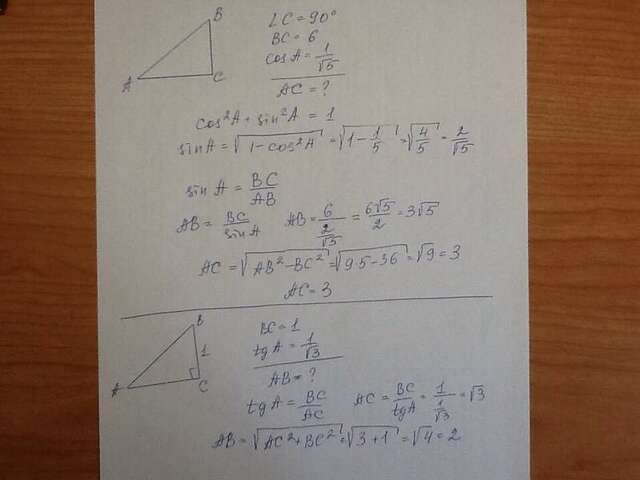 B
A
C
∠C = 90°
BC = 6
cos A = 1/√5
AC = ?
cos²A + sin²A = 1
sin A = √(1 - cos²A) = √(1 - 1/5) = √(4/5) = 2/√5
sin A = BC/AB
AB = BC/sin A   AB = 6/(2/√5) = 6√5/2 = 3√5
AC = √(AB² - BC²) = √(9·5 - 36) = √9 = 3
AC = 3
B
1
A
C
BC = 1
tg A = 1/√3
AB = ?
tg A = BC/AC   AC = BC/tg A = 1/(1/√3) = √3
AB = √(AC² + BC²) = √(3 + 1) = √4 = 2